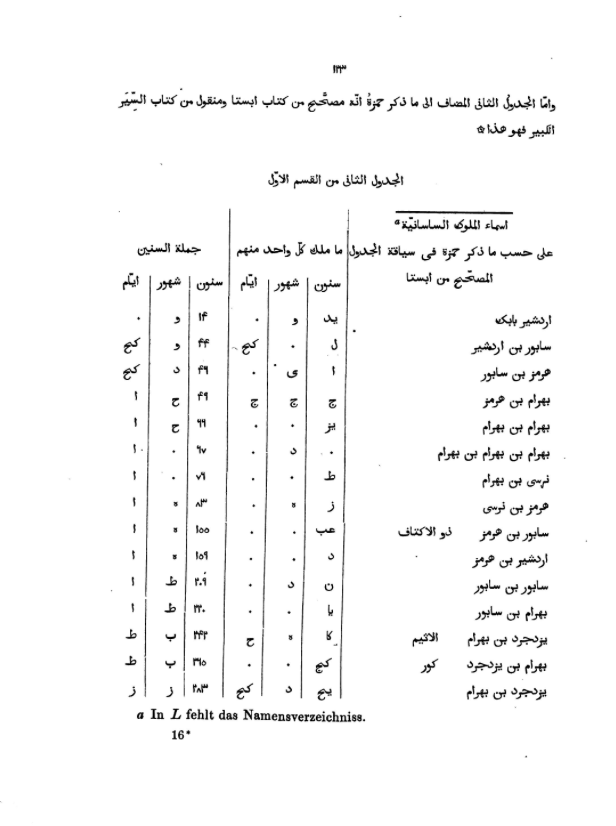 ١٢٣
وامّا الجدول الثانى المضاف الى ما ذكر حمزةُ انّه مصحَّح من كتاب ابستا ومنقول من كتاب السِّيَر
الكبير فهو هذا ۞
الجدول الثانى من القسم الاوّل
اسماء الملوك الساسانيّة a
على حسب ما ذكر حمزة فى سياقة الجدول ما ملك كلّ واحد منهم جملة السنين
المصحّح من ابستا سنون شهور ايّام سنون شهور ايّام
اردشير بابك يد و ٠ ١۴ و ٠
سابور بن اردشير ل ٠ كح ۴۴ و كح
هرمز بن سابور ا ى ٠ ۴٦ د كح
بهرام بن هرمز ج ج ج ۴٩ ح ا
بهرام بن بهرام يز ٠ ٠ ٦٦ ح ا
بهرام بن بهرام بن بهرام ٠ د ٠ ٦٧ ٠ ا
نرسى بن بهرام ط ٠ ٠ ٧٦ ٠ ا
هرمز بن نرسى ز ه ٠ ٨٣ ه ا
سابور بن هرمز ذو الاكتاف عب ٠ ٠ ١٥٥ ه ا
اردشير بن هرمز د ٠ ٠ ١٥٩ ه ا
سابور بن سابور ن د ٠ ٢٠٩ ط ا
بهرام بن سابور يا ٠ ٠ ٢٢٠ ط ا
يزدجرد بن بهرام الاثيم كا ه ح ٢۴٢ ب ط
بهرام بن يزدجرد كور كج ٠ ٠ ٢٦٥ ب ط
يزدجرد بن بهرام يح د كح ٢٨٣ ز ز
a In L fehlt das Namensverzeichniss.
16*